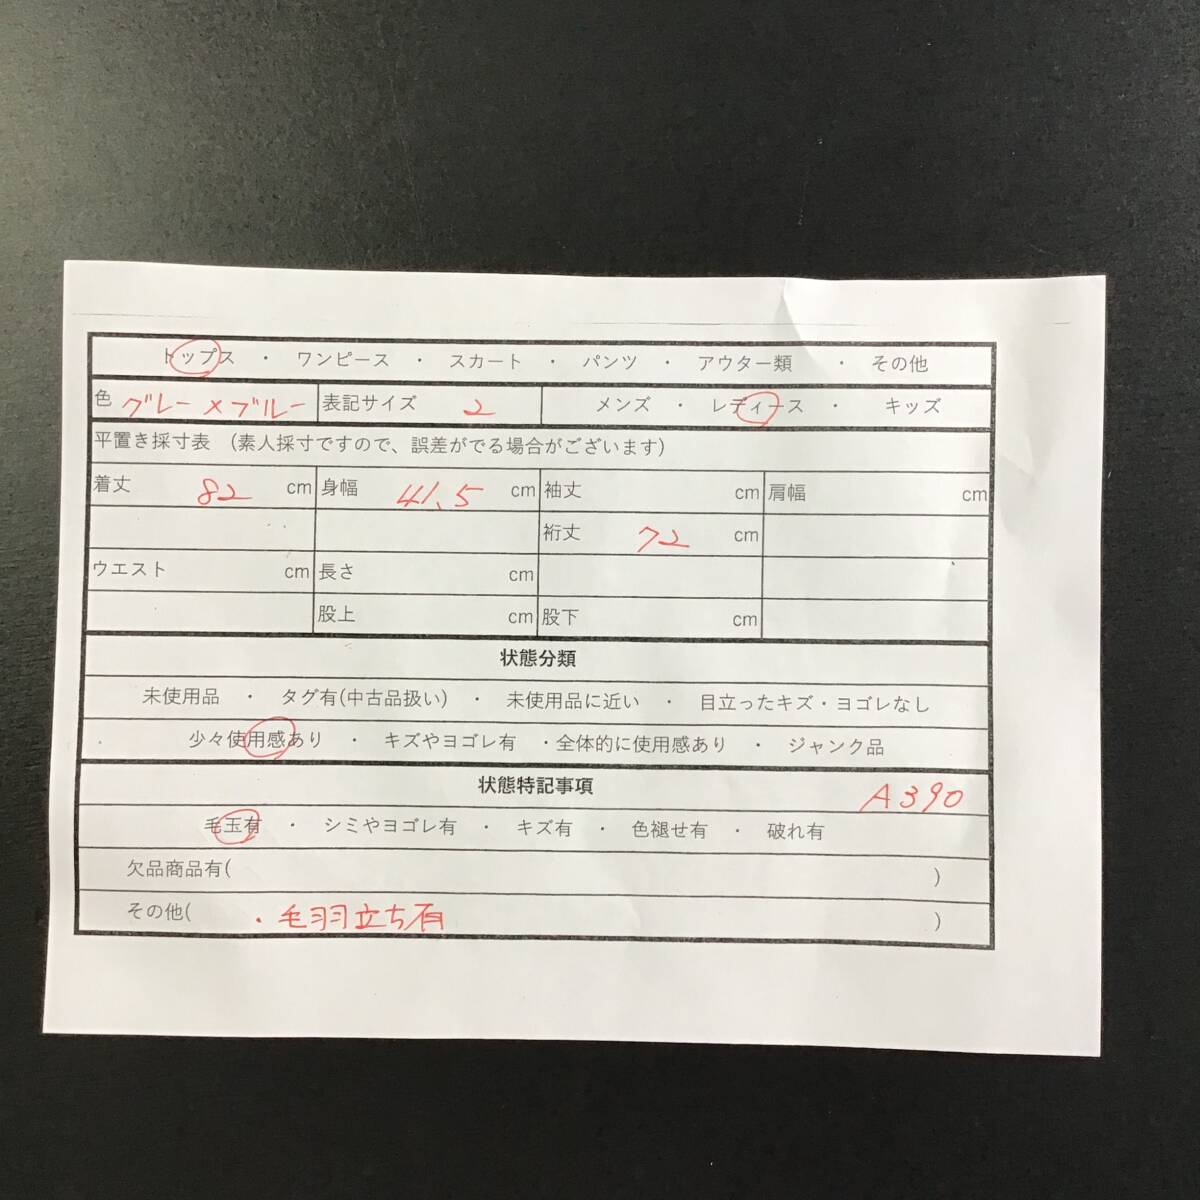 トップス ・ ワンピース ・ スカート ・ パンツ ・ アウター類 ・ その他
色 グレー×ブルー 表記サイズ 2 メンズ ・ レディース ・ キッズ
平置き採寸表 (素人採寸ですので、誤差がでる場合がございます)
着丈 82 cm 身幅 41.5 cm 袖丈 cm 肩幅 cm
裄丈 72 cm
ウエスト cm 長さ cm
股上 cm 股下 cm
状態分類
未使用品 ・ タグ有(中古品扱い) ・ 未使用品に近い ・ 目立ったキズ・ヨゴレなし
少々使用感あり ・ キズやヨゴレ有 ・全体的に使用感あり ・ ジャンク品
状態特記事項 A390
毛玉有 ・ シミやヨゴレ有 ・ キズ有 ・ 色褪せ有 ・ 破れ有
欠品商品有( )
その他( ・毛羽立ち有 )